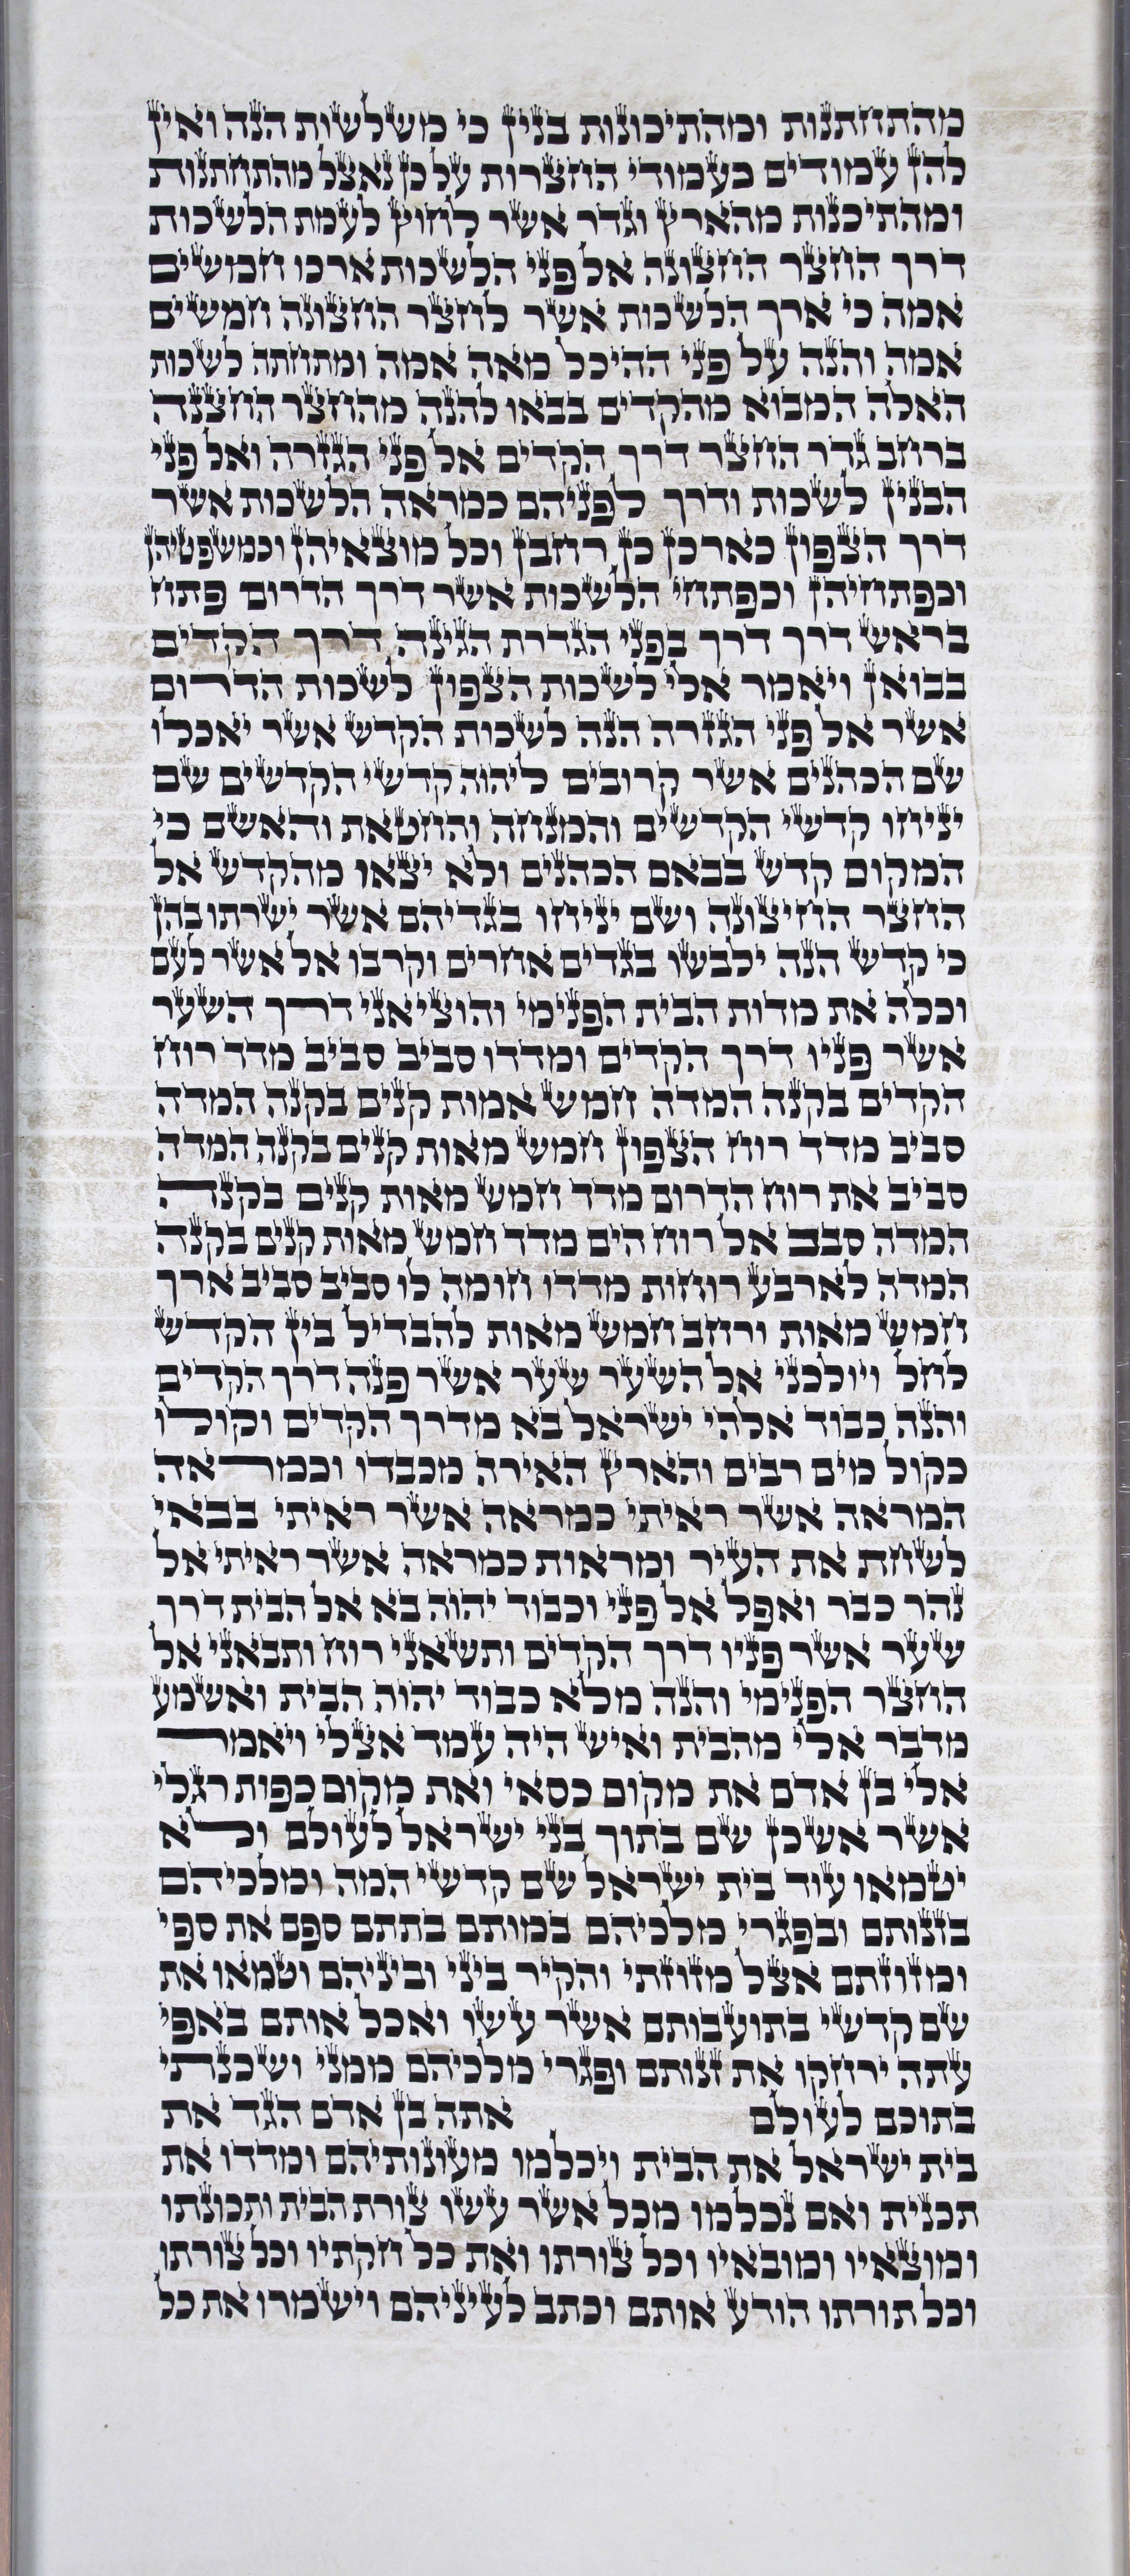 מהתחתנות ומהתיכונות בנין כי משלשות הנה ואין
להן עמודים כעמודי החצרות על כן נאצל מהתחתנות
ומהתיכנות מהארץ וגדר אשר לחוץ לעמת הלשכות
דרך החצר החצונה אל פני הלשכות ארכו חמשים
אמה כי ארך הלשכות אשר לחצר החצונה חמשים
אמה והנה על פני ההיכל מאה אמה ומתחתה לשכות
האלה המבוא מהקדים בבאו להנה מהחצר החצנה
ברחב גדר החצר דרך הקדים אל פני הגזרה ואל פני
הבנין לשכות ודרך לפניהם כמראה הלשכות אשר
דרך הצפון כארכן כן רחבן וכל מוצאיהן וכמשפטיהן
וכפתחיהן וכפתחי הלשכות אשר דרך הדרום פתח
בראש דרך דרך בפני הגדרת הגינה דרך הקדים
בבואן ויאמר אלי לשכות הצפון לשכות הדרום
אשר אל פני הגזרה הנה לשכות הקדש אשר יאכלו
שם הכהנים אשר קרובים ליהוה קדשי הקדשים שם
יניחו קדשי הקדשים והמנחה והחטאת והאשם כי
המקום קדש בבאם הכהנים ולא יצאו מהקדש אל
החצר החיצונה ושם יניחו בגדיהם אשר ישרתו בהן
כי קדש הנה ילבשו בגדים אחרים וקרבו אל אשר לעם
וכלה את מדות הבית הפנימי והוציאני דרך השער
אשר פניו דרך הקדים ומדדו סביב סביב מדד רוח
הקדים בקנה המדה חמש אמות קנים בקנה המדה
סביב מדד רוח הצפון חמש מאות קנים בקנה המדה
סביב את רוח הדרום מדד חמש מאות קנים בקנה
המדה סבב אל רוח הים מדד חמש מאות קנים בקנה
המדה לארבע רוחות מדדו חומה לו סביב סביב ארך
חמש מאות ורחב חמש מאות להבדיל בין הקדש
לחל ויולכני אל השער שער אשר פנה דרך הקדים
והנה כבוד אלהי ישראל בא מדרך הקדים וקולו
כקול מים רבים והארץ האירה מכבדו וכמראה
המראה אשר ראיתי כמראה אשר ראיתי בבאי
לשחת את העיר ומראות כמראה אשר ראיתי אל
נהר כבר ואפל אל פני וכבוד יהוה בא אל הבית דרך
שער אשר פניו דרך הקדים ותשאני רוח ותבאני אל
החצר הפנימי והנה מלא כבוד יהוה הבית ואשמע
מדבר אלי מהבית ואיש היה עמד אצלי ויאמר
אלי בן אדם את מקום כסאי ואת מקום כפות רגלי
אשר אשכן שם בתוך בני ישראל לעולם ולא
יטמאו עוד בית ישראל שם קדשי המה ומלכיהם
בזנותם ובפגרי מלכיהם במותם בתתם ספם את ספי
ומזוזתם אצל מזוזתי והקיר ביני וביניהם וטמאו את
שם קדשי בתועבותם אשר עשו ואכל אותם באפי
עתה ירחקו את זנותם ופגרי מלכיהם ממני ושכנתי
בתוכם לעולם אתה בן אדם הגד את
בית ישראל את הבית ויכלמו מעונותיהם ומדדו את
תכנית ואם נכלמו מכל אשר עשו צורת הבית ותכונתו
ומוצאיו ומובאיו וכל צורתו ואת כל חקתיו וכל צורתו
וכל תורתו הודע אותם וכתב לעיניהם וישמרו את כל